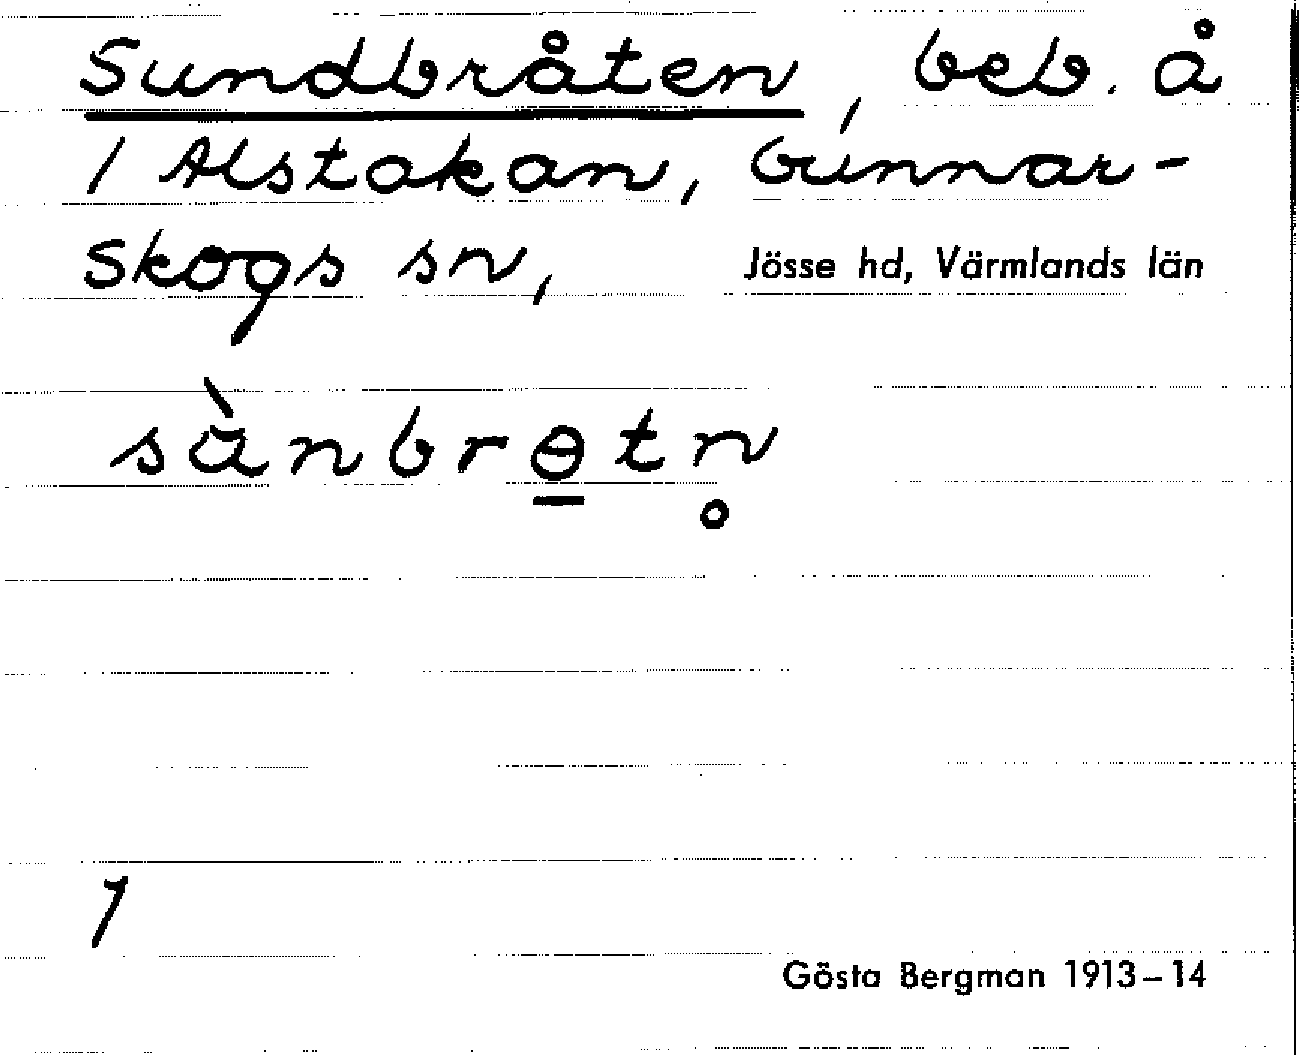 Sundbråten, beb. å
1 Alstakan, Gunnar-
skogs sn, Jösse hd, Värmlands län
sànbrɵ̲tn̥
1
Gösta Bergman 1913–14